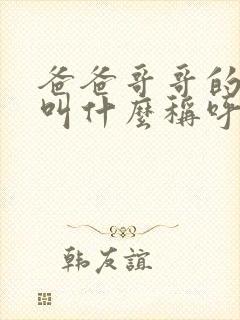 爸爸哥哥的
叫什麼稱呼
韩友誼